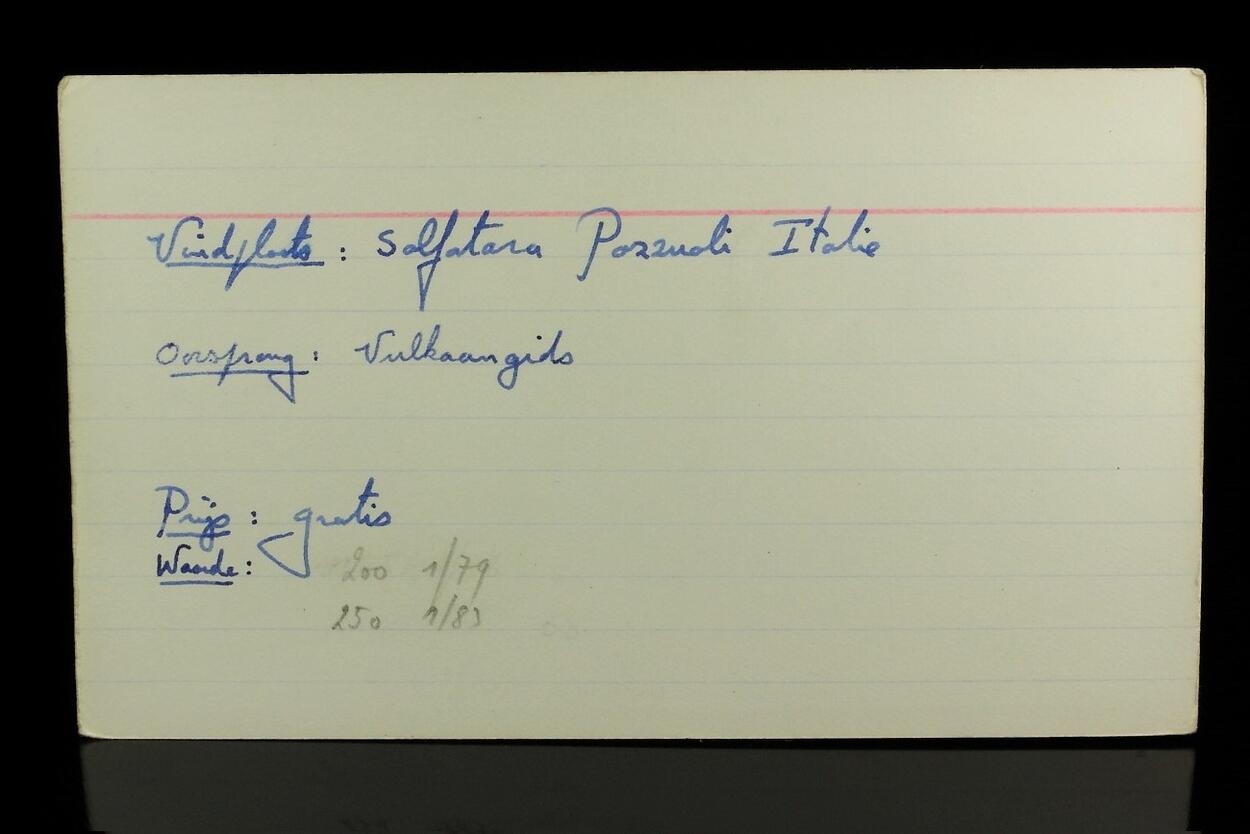 Vindplaats : Solfatara Pozzuoli Italie
Oorsprong : Vulkaangids
Prijs : gratis
Waarde : 200 1/79
250 1/83